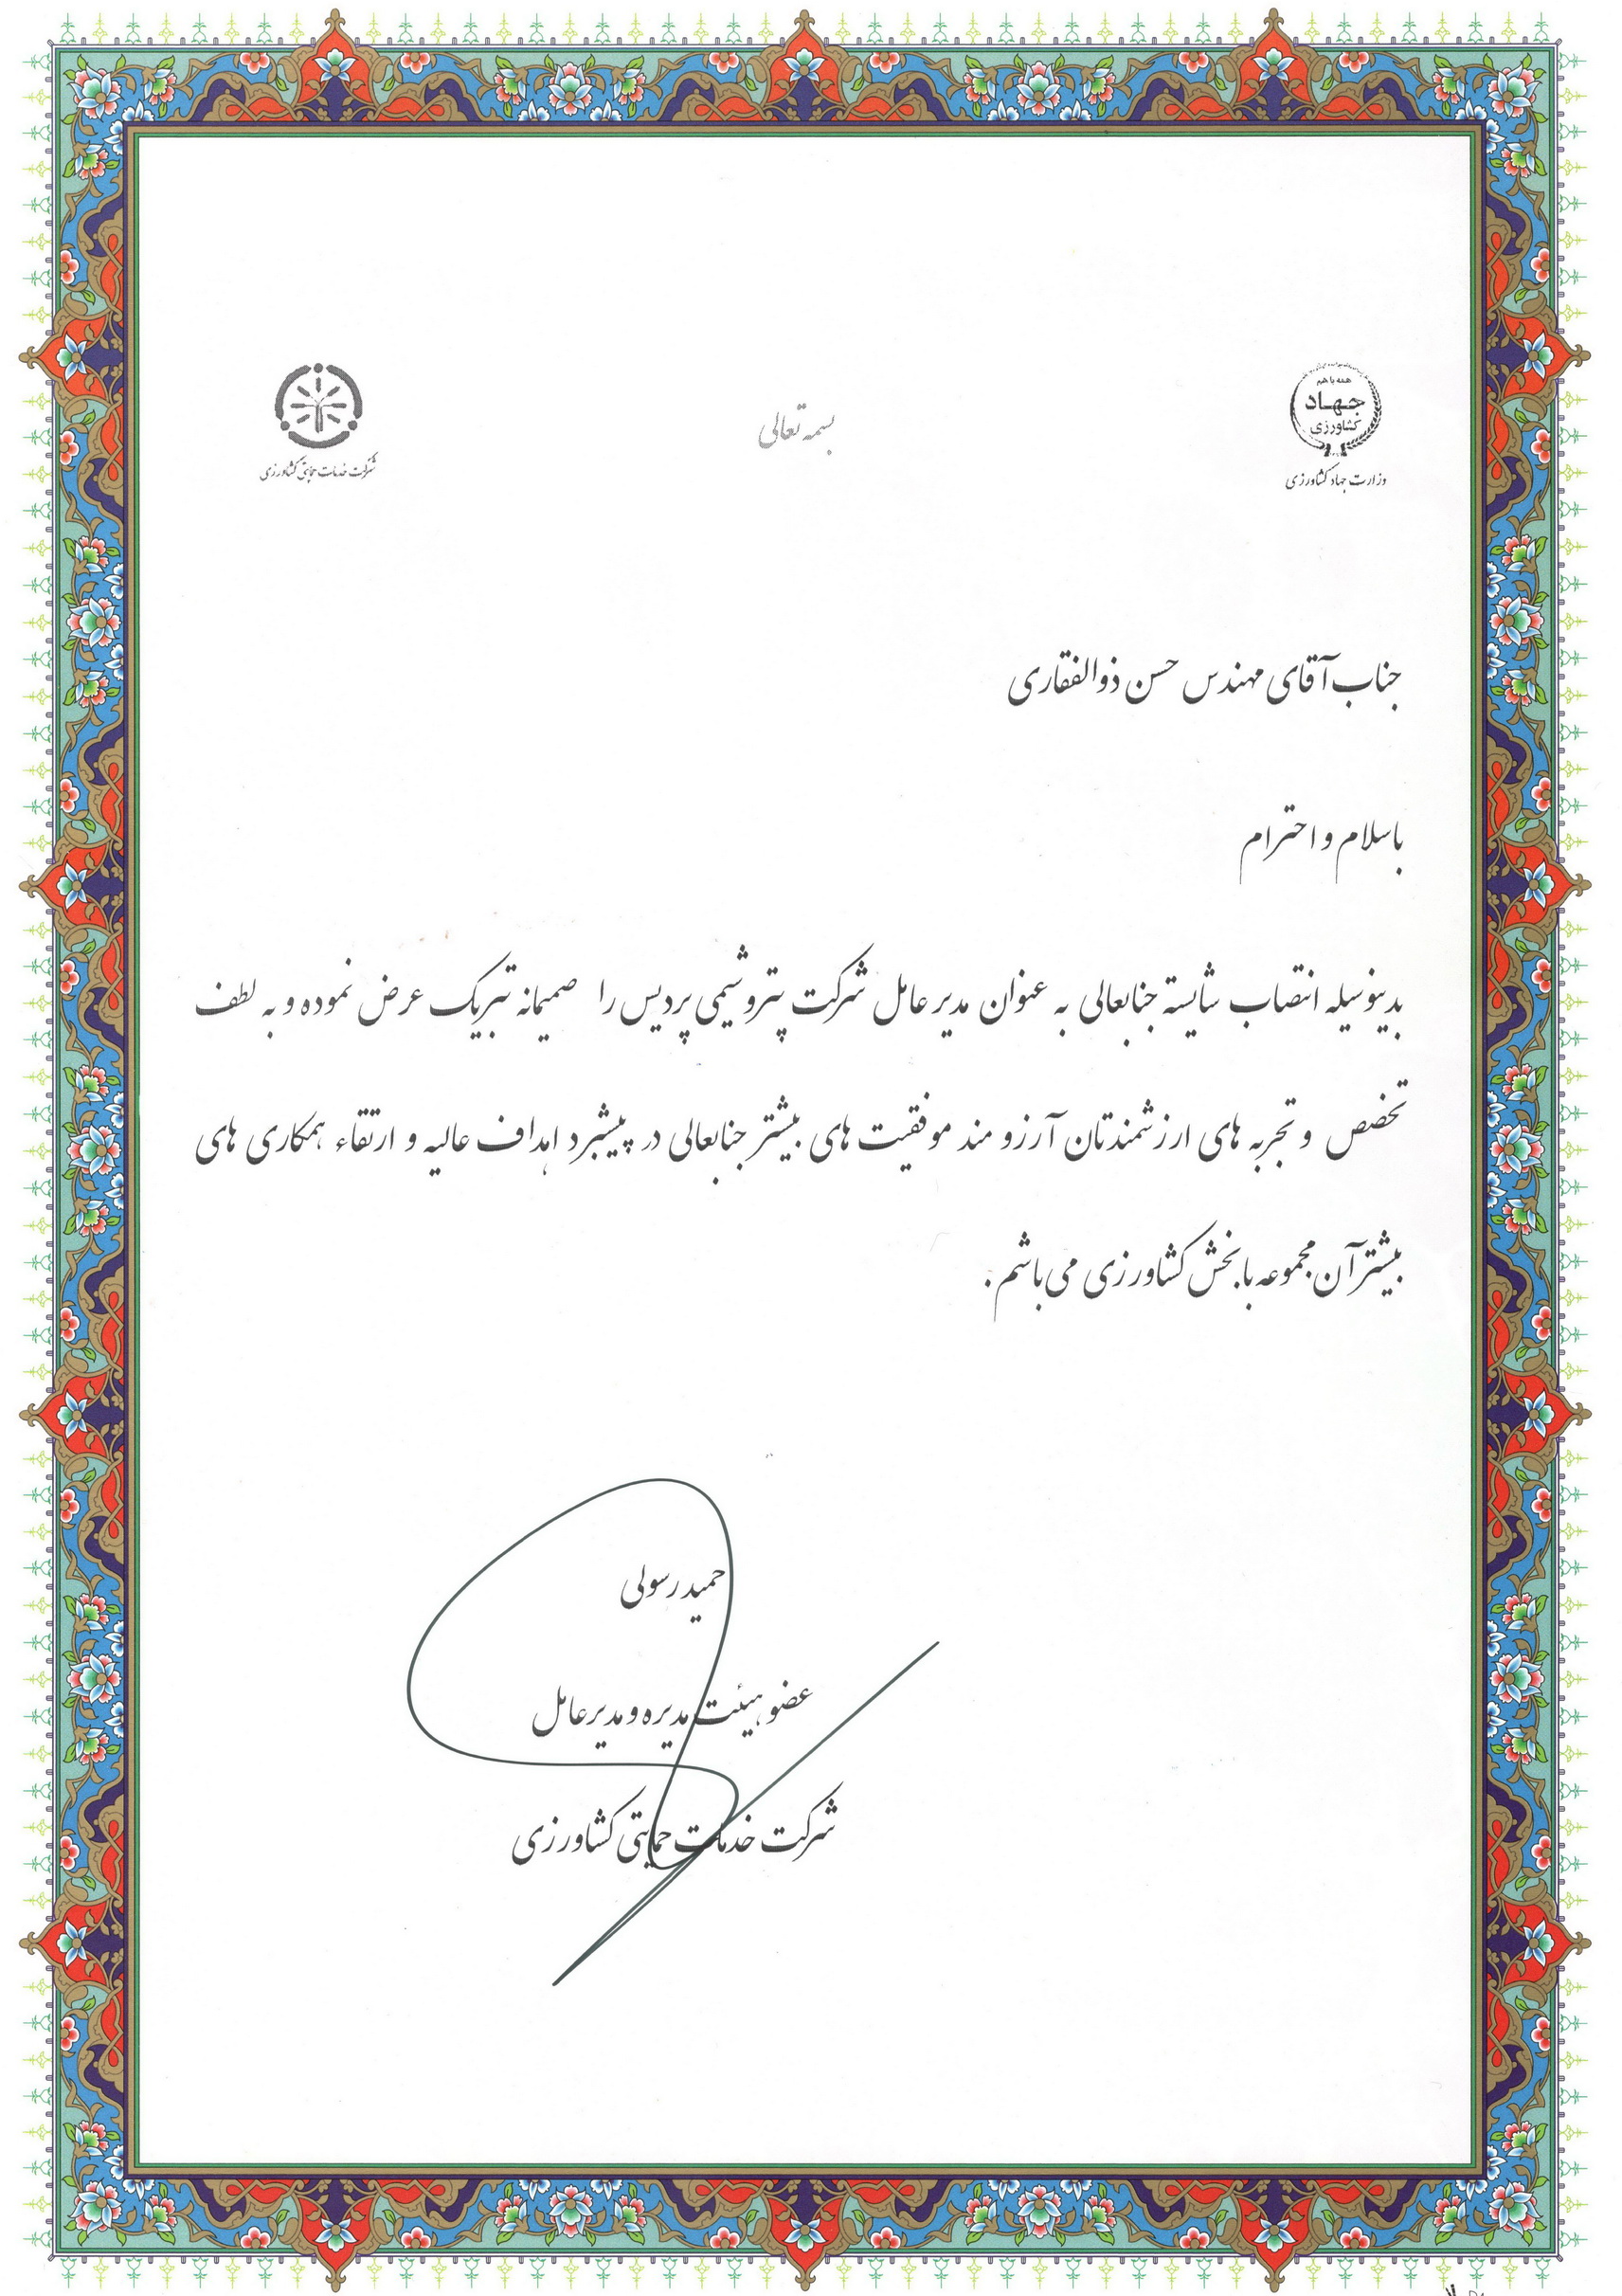 همه با هم
جهاد
کشاورزی
وزارت جهاد کشاورزی
بسمه تعالی
شرکت خدمات حمایتی کشاورزی
جناب آقای مهندس حسن ذوالفقاری
باسلام و احترام
بدینوسیله انتصاب شایسته جنابعالی به عنوان مدیر عامل شرکت پتروشیمی پردیس را صمیمانه تبریک عرض نموده و به لطف
تخصص و تجربه های ارزشمندتان آرزو مند موفقیت های بیشتر جنابعالی در پیشبرد اهداف عالیه و ارتقاء همکاری های
بیشتر آن مجموعه با بخش کشاورزی می باشم .
حمید رسولی
عضو هیئت مدیره و مدیر عامل
شرکت خدمات حمایتی کشاورزی